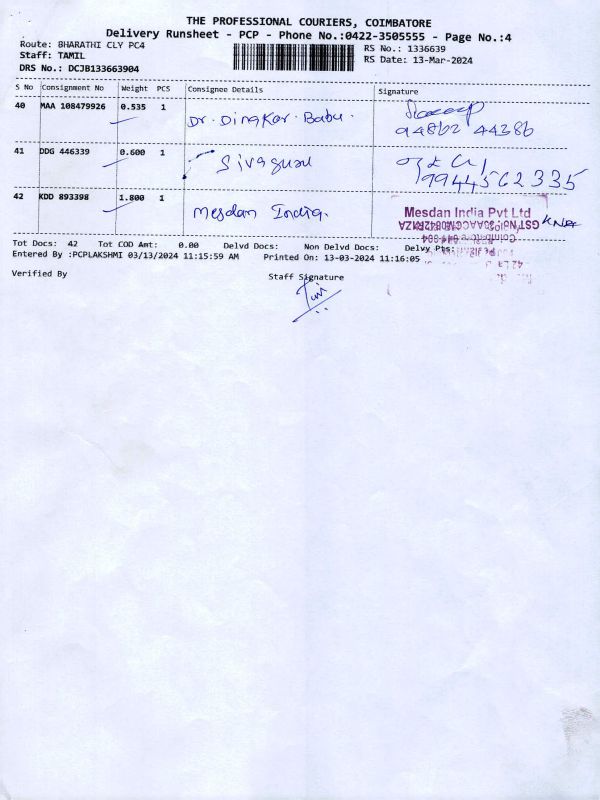 THE PROFESSIONAL COURIERS, COIMBATORE
Delivery Runsheet - PCP - Phone No.:0422-3505555 - Page No.:4
Route: BHARATHI CLY PC4
RS No.: 1336639
Staff: TAMIL
RS Date: 13-Mar-2024
DRS No.: DCJB133663904
S No Consignment No Weight PCS Consignee Details Signature
40 MAA 108479926 0.535 1 Dr. Dinakar. Babu.
94862 44386
41 DDG 446339 0.600 1 Sivaguru
9944562335
42 KDD 893398 1.800 1 Mesdan India.
Mesdan India Pvt Ltd
Tot Docs: 42 Tot COD Amt: 0.00 Delvd Docs: Non Delvd Docs: Delvy Pts:
Entered By :PCPLAKSHMI 03/13/2024 11:15:59 AM Printed On: 13-03-2024 11:16:05
Verified By
Staff Signature